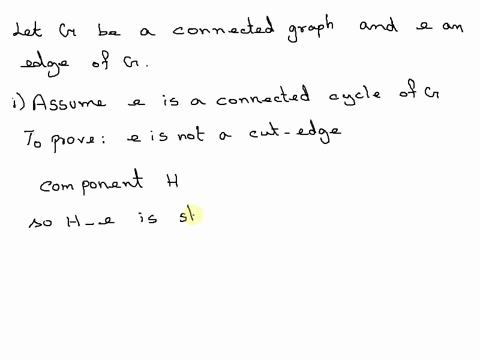 Let G be a connected graph and e an
edge of G.
i) Assume e is a connected cycle of G
To prove: e is not a cut-edge
component H
so H-e is st